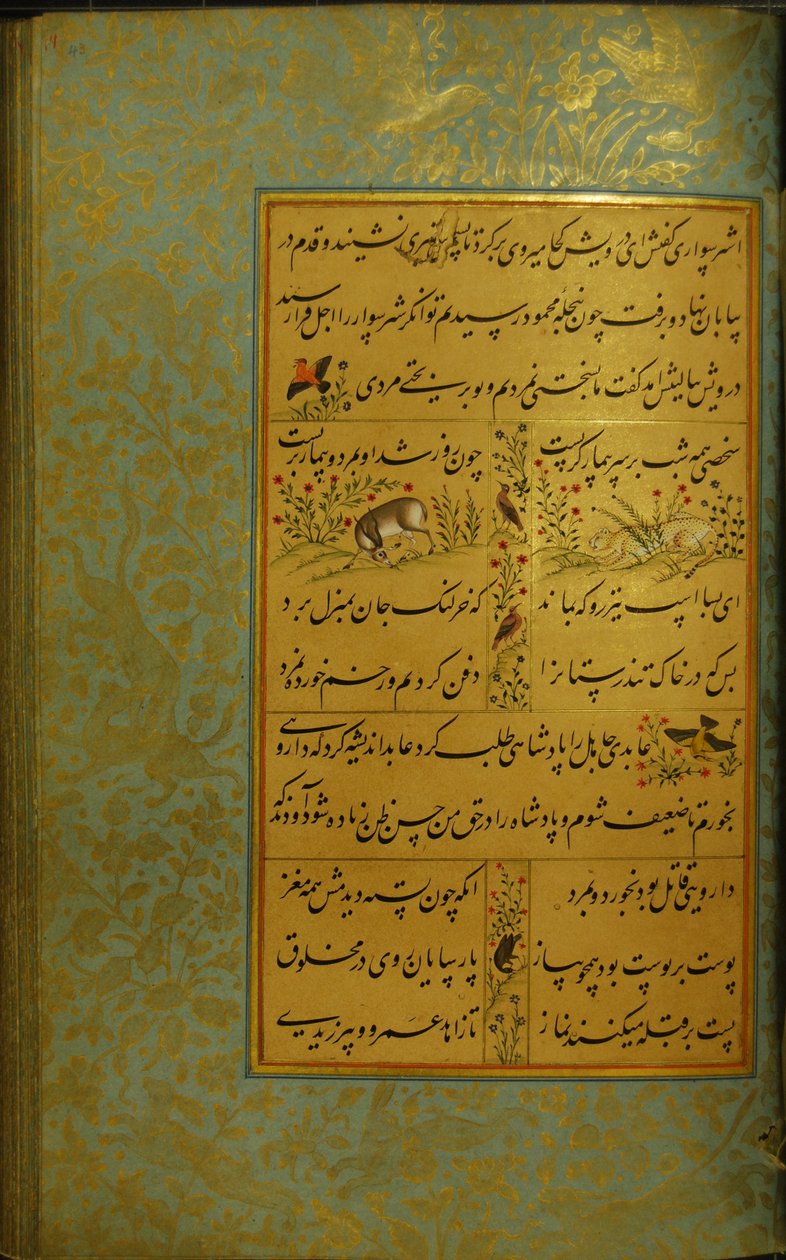 43
اشتر سواری کفتش ای درویش کجا میروی برکرد تا بسختی نمیری نشیند و قدم در
بیابان نهاد و برفت چون بنخلهٔ محمود در رسیدیم توانکر شتر سوار را اجل فرا رسید
درویش ببالینش امد کفت ما بسختی نمردیم و تو بر بختی مردی
شخصی همه شب بر سر بیمار کریست چون روز شد او بمرد و بیمار بزیست
ای بسا اسپ تیزرو که بماند که خر لنک جان بمنزل برد
بس که در خاک تندرستانرا دفن کردیم و زخم خورده نمرد
عابدی جاهل را پادشاهی طلب کرد عابد اندیشه کرد که داروئی
بخورم تا ضعیف شوم و پادشاه را در حق من حسن ظن زیاده شود آورده‌اند که
دارویی قاتل بود بخورد و بمرد انکه چون پسته دیدمش همه مغز
پوست بر پوست بود همچو پیاز پارسایان روی در مخلوق
پشت بر قبله میکنند نماز تا زاهد عمرو و زیدیی